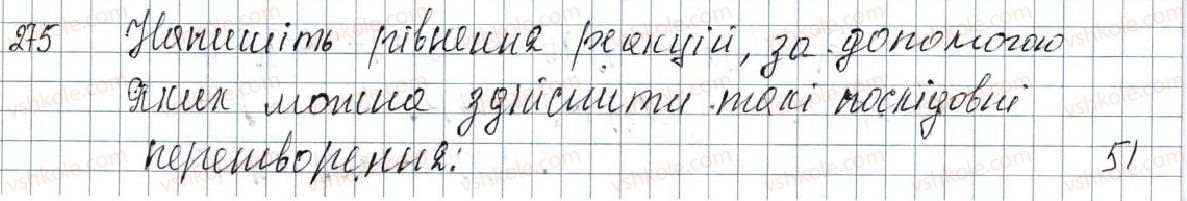 275 Напишіть рівняння реакцій, за допомогою
яких можна здійснити такі послідовні
перетворення: 51